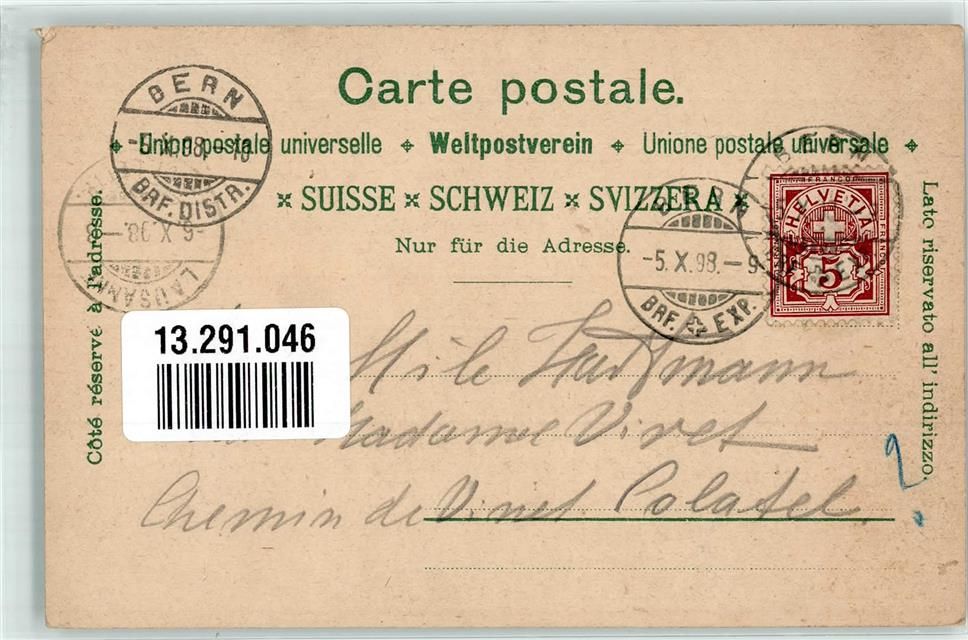 Carte postale.
Union postale universelle Weltpostverein Unione postale universale
SUISSE × SCHWEIZ × SVIZZERA
Nur für die Adresse.
Côté réservé à l'adresse.
Lato riservato all' indirizzo.
BERN
X.98.
BRF. DISTR.
LAUSANN
X.98.
BERN
-5.X.98.-9
BRF. EXP.
BERN
FRANCO
HELVETIA
FRANCO
5
13.291.046
Hartmann
Madame Vivet
Chemin de Vinet